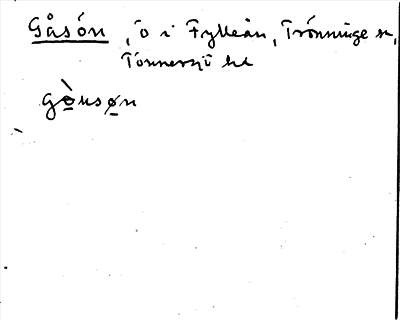 Gåsön, ö i Fylleån, Trönninge sn,
Tönnersjö hd
gò̠usø̠n